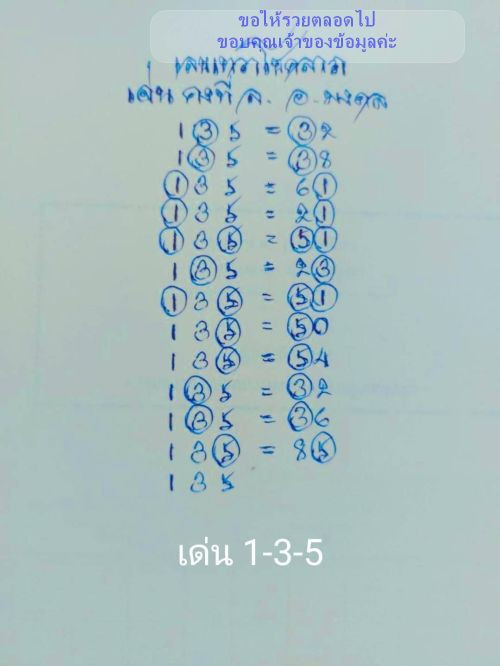 ขอให้รวยตลอดไป
ขอบคุณเจ้าของข้อมูลค่ะ
เด่น คงที่ ล. อ. มงคล
1 3 5 = 32
1 3 5 = 38
1 3 5 = 61
1 3 5 = 21
1 3 5 = 51
1 3 5 = 23
1 3 5 = 51
1 3 5 = 50
1 3 5 = 54
1 3 5 = 32
1 3 5 = 36
1 3 5 = 85
1 3 5
เด่น 1-3-5